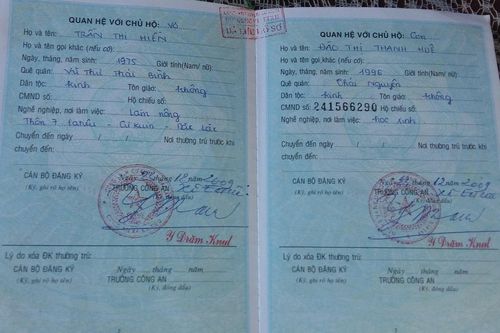 QUAN HỆ VỚI CHỦ HỘ: Vợ
Họ và tên: TRẦN THỊ HIỀN
Họ và tên gọi khác (nếu có):
Ngày, tháng, năm sinh: 1975 Giới tính(Nam/ nữ)
Quê quán: Vũ Thư Thái Bình
Dân tộc: kinh Tôn giáo: không
CMND số: Hộ chiếu số:
Nghề nghiệp, nơi làm việc: Làm nông
Thôn 7 - Cư Kuin - Đắc Lắc
Chuyển đến ngày / / . Nơi thường trú trước khi
chuyển đến:
Ngày 22 tháng 12 năm 2009
CÁN BỘ ĐĂNG KÝ TRƯỞNG CÔNG AN
(Ký, ghi rõ họ tên) (Ký, đóng dấu)
Y Drăm Knul
Lý do xóa ĐK thường trú:
Ngày tháng năm
CÁN BỘ ĐĂNG KÝ TRƯỞNG CÔNG AN
(Ký, ghi rõ họ tên) (Ký, đóng dấu)
QUAN HỆ VỚI CHỦ HỘ: Con
Họ và tên: ĐÀO THỊ THANH HUÊ
Họ và tên gọi khác (nếu có):
Ngày, tháng, năm sinh: 1996 Giới tính(Nam/ nữ)
Quê quán: Thái Nguyên
Dân tộc: kinh Tôn giáo: không
CMND số: 241566290 Hộ chiếu số:
Nghề nghiệp, nơi làm việc: học sinh
Chuyển đến ngày / / . Nơi thường trú trước khi
chuyển đến:
Ngày 22 tháng 12 năm 2009
CÁN BỘ ĐĂNG KÝ TRƯỞNG CÔNG AN
(Ký, ghi rõ họ tên) (Ký, đóng dấu)
Y Drăm Knul
Lý do xóa ĐK thường trú:
Ngày tháng năm
CÁN BỘ ĐĂNG KÝ TRƯỞNG CÔNG AN
(Ký, ghi rõ họ tên) (Ký, đóng dấu)